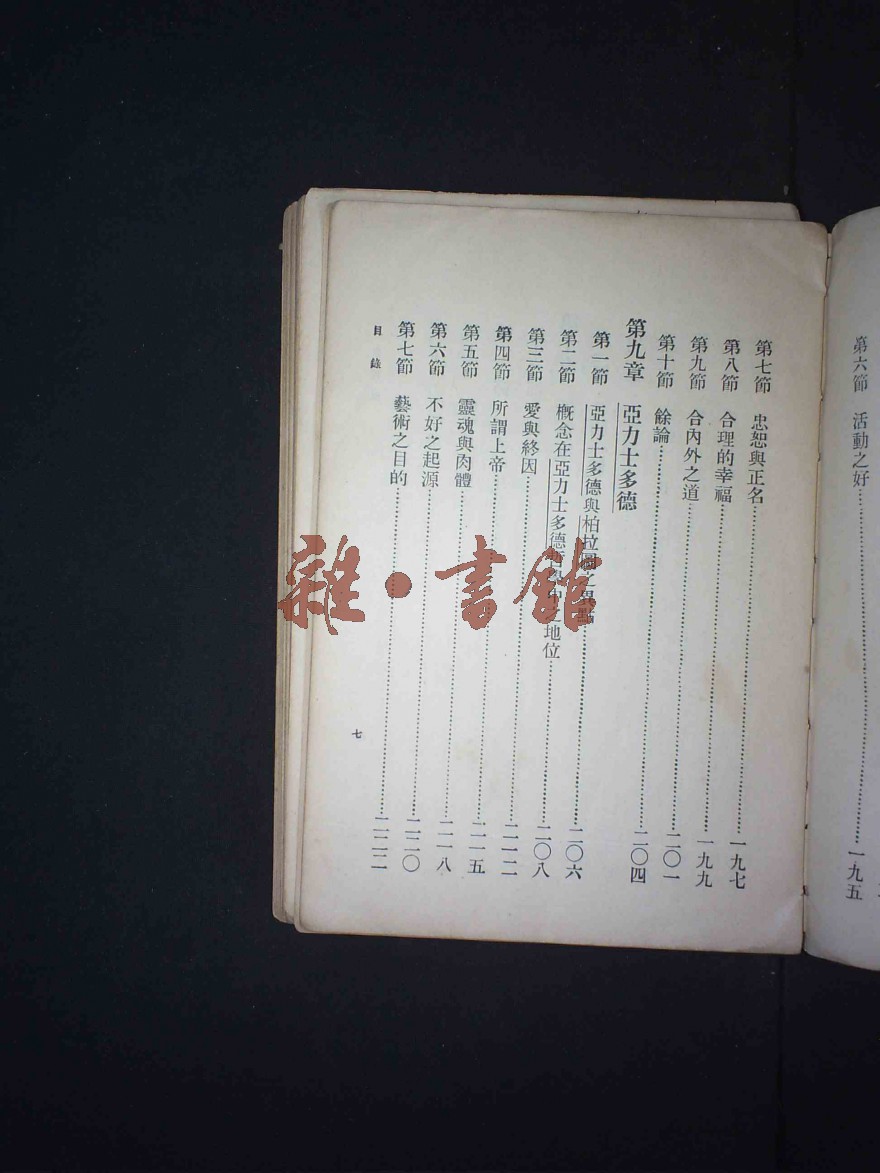 第六節 活動之好……一九五
第七節 忠恕與正名……一九七
第八節 合理的幸福……一九九
第九節 合內外之道……二〇一
第十節 餘論……二〇四
第九章 亞力士多德
第一節 亞力士多德與柏拉圖之異點……二〇六
第二節 概念在亞力士多德哲學中之地位……二〇八
第三節 愛與終因……二一二
第四節 所謂上帝……二一五
第五節 靈魂與肉體……二一八
第六節 不好之起源……二二〇
第七節 藝術之目的……二二二
目錄
七
雜·書館